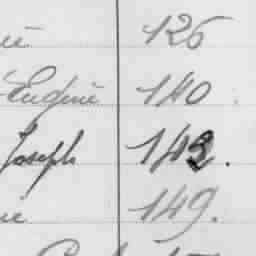 ie 126
Eugénie 140
Joseph 142.
ie 149.